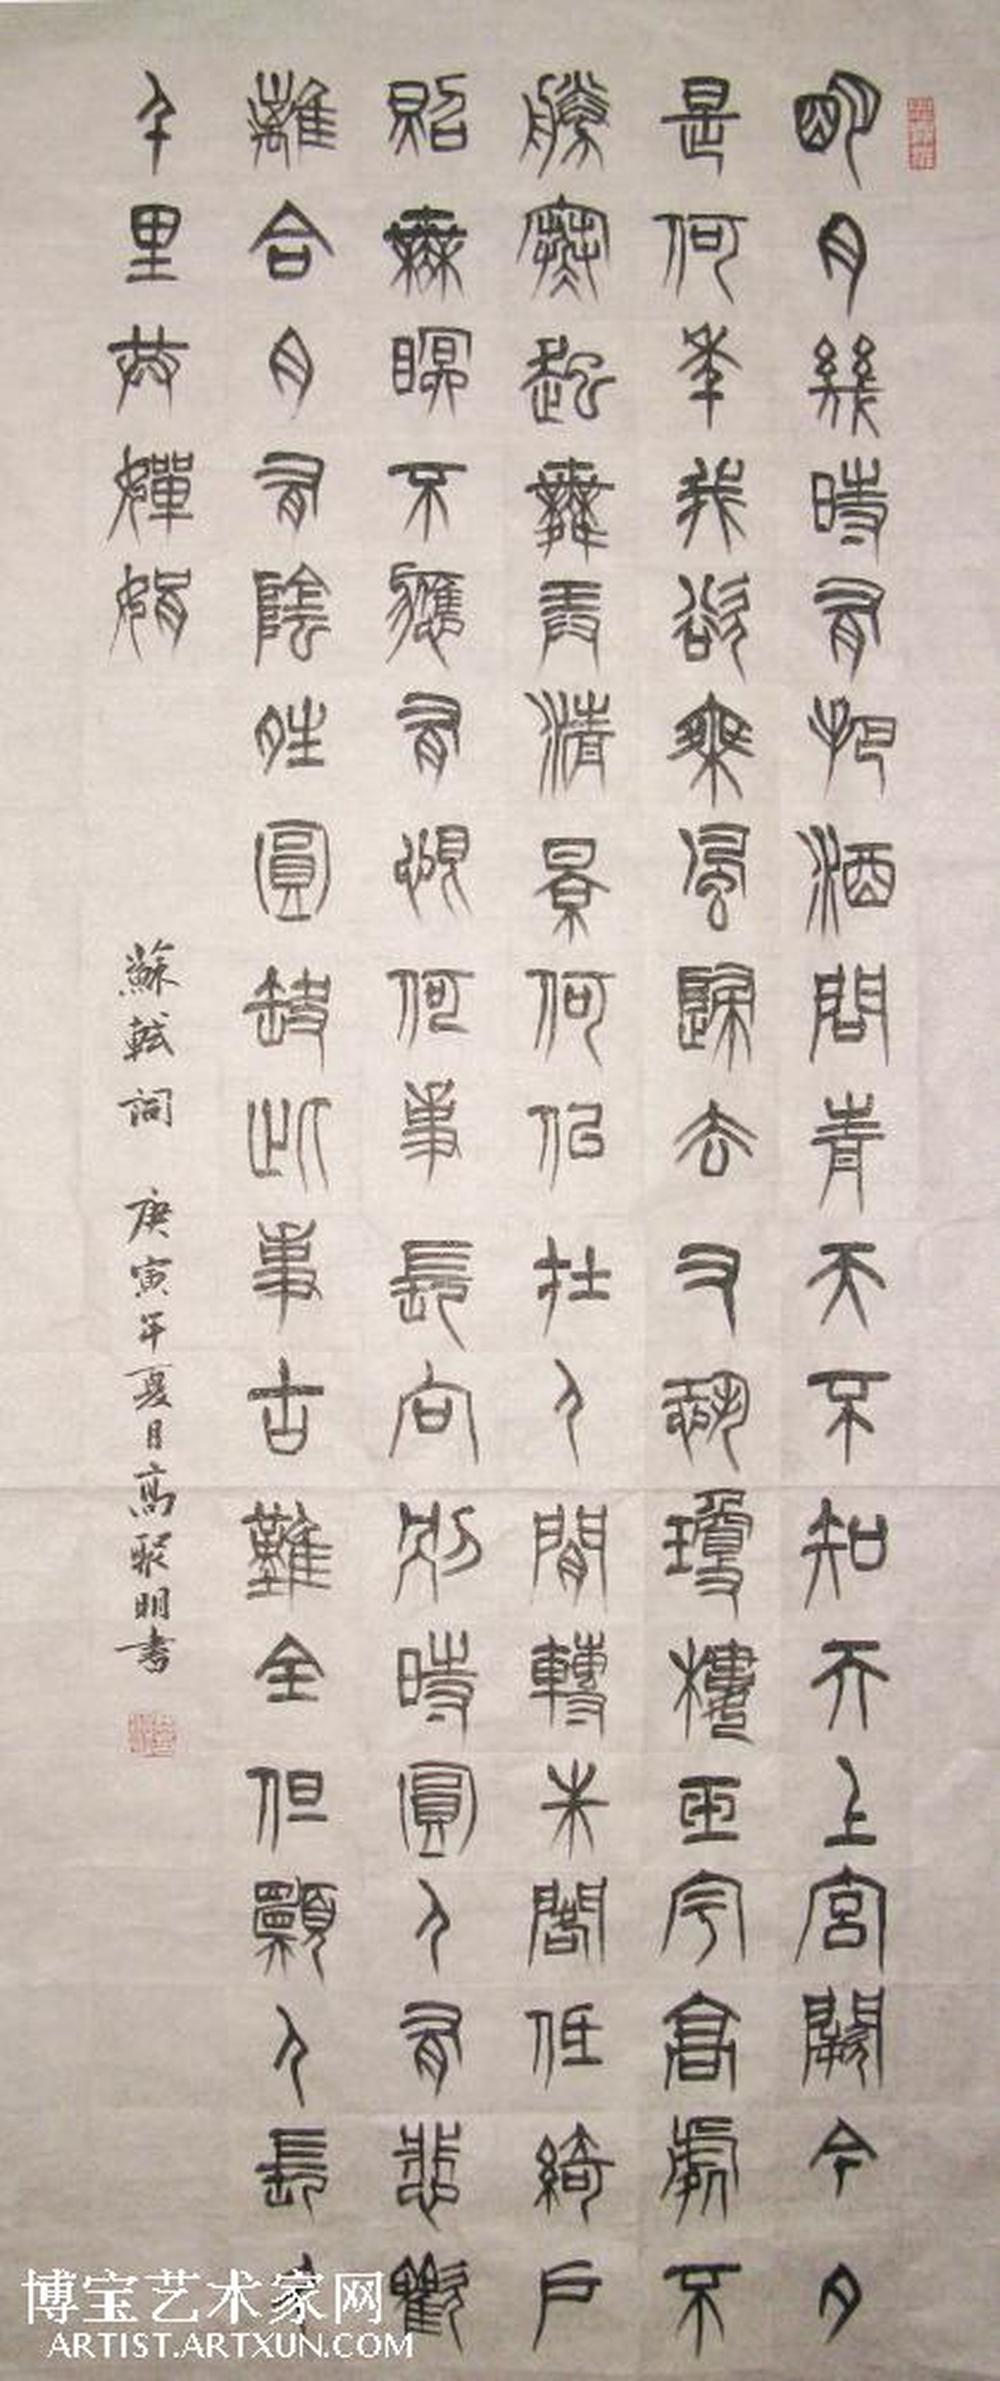 明月幾時有把酒問青天不知天上宮闕今夕
是何年我欲乘風歸去又恐瓊樓玉宇高處不
勝寒起舞弄清景何似在人間轉朱閣低綺戶
照無眠不應有恨何事長向別時圓人有悲歡
離合月有陰晴圓缺此事古難全但願人長久
千里共嬋娟
蘇軾詞 庚寅年夏月高聚明書
博宝艺术家网
ARTIST.ARTXUN.COM